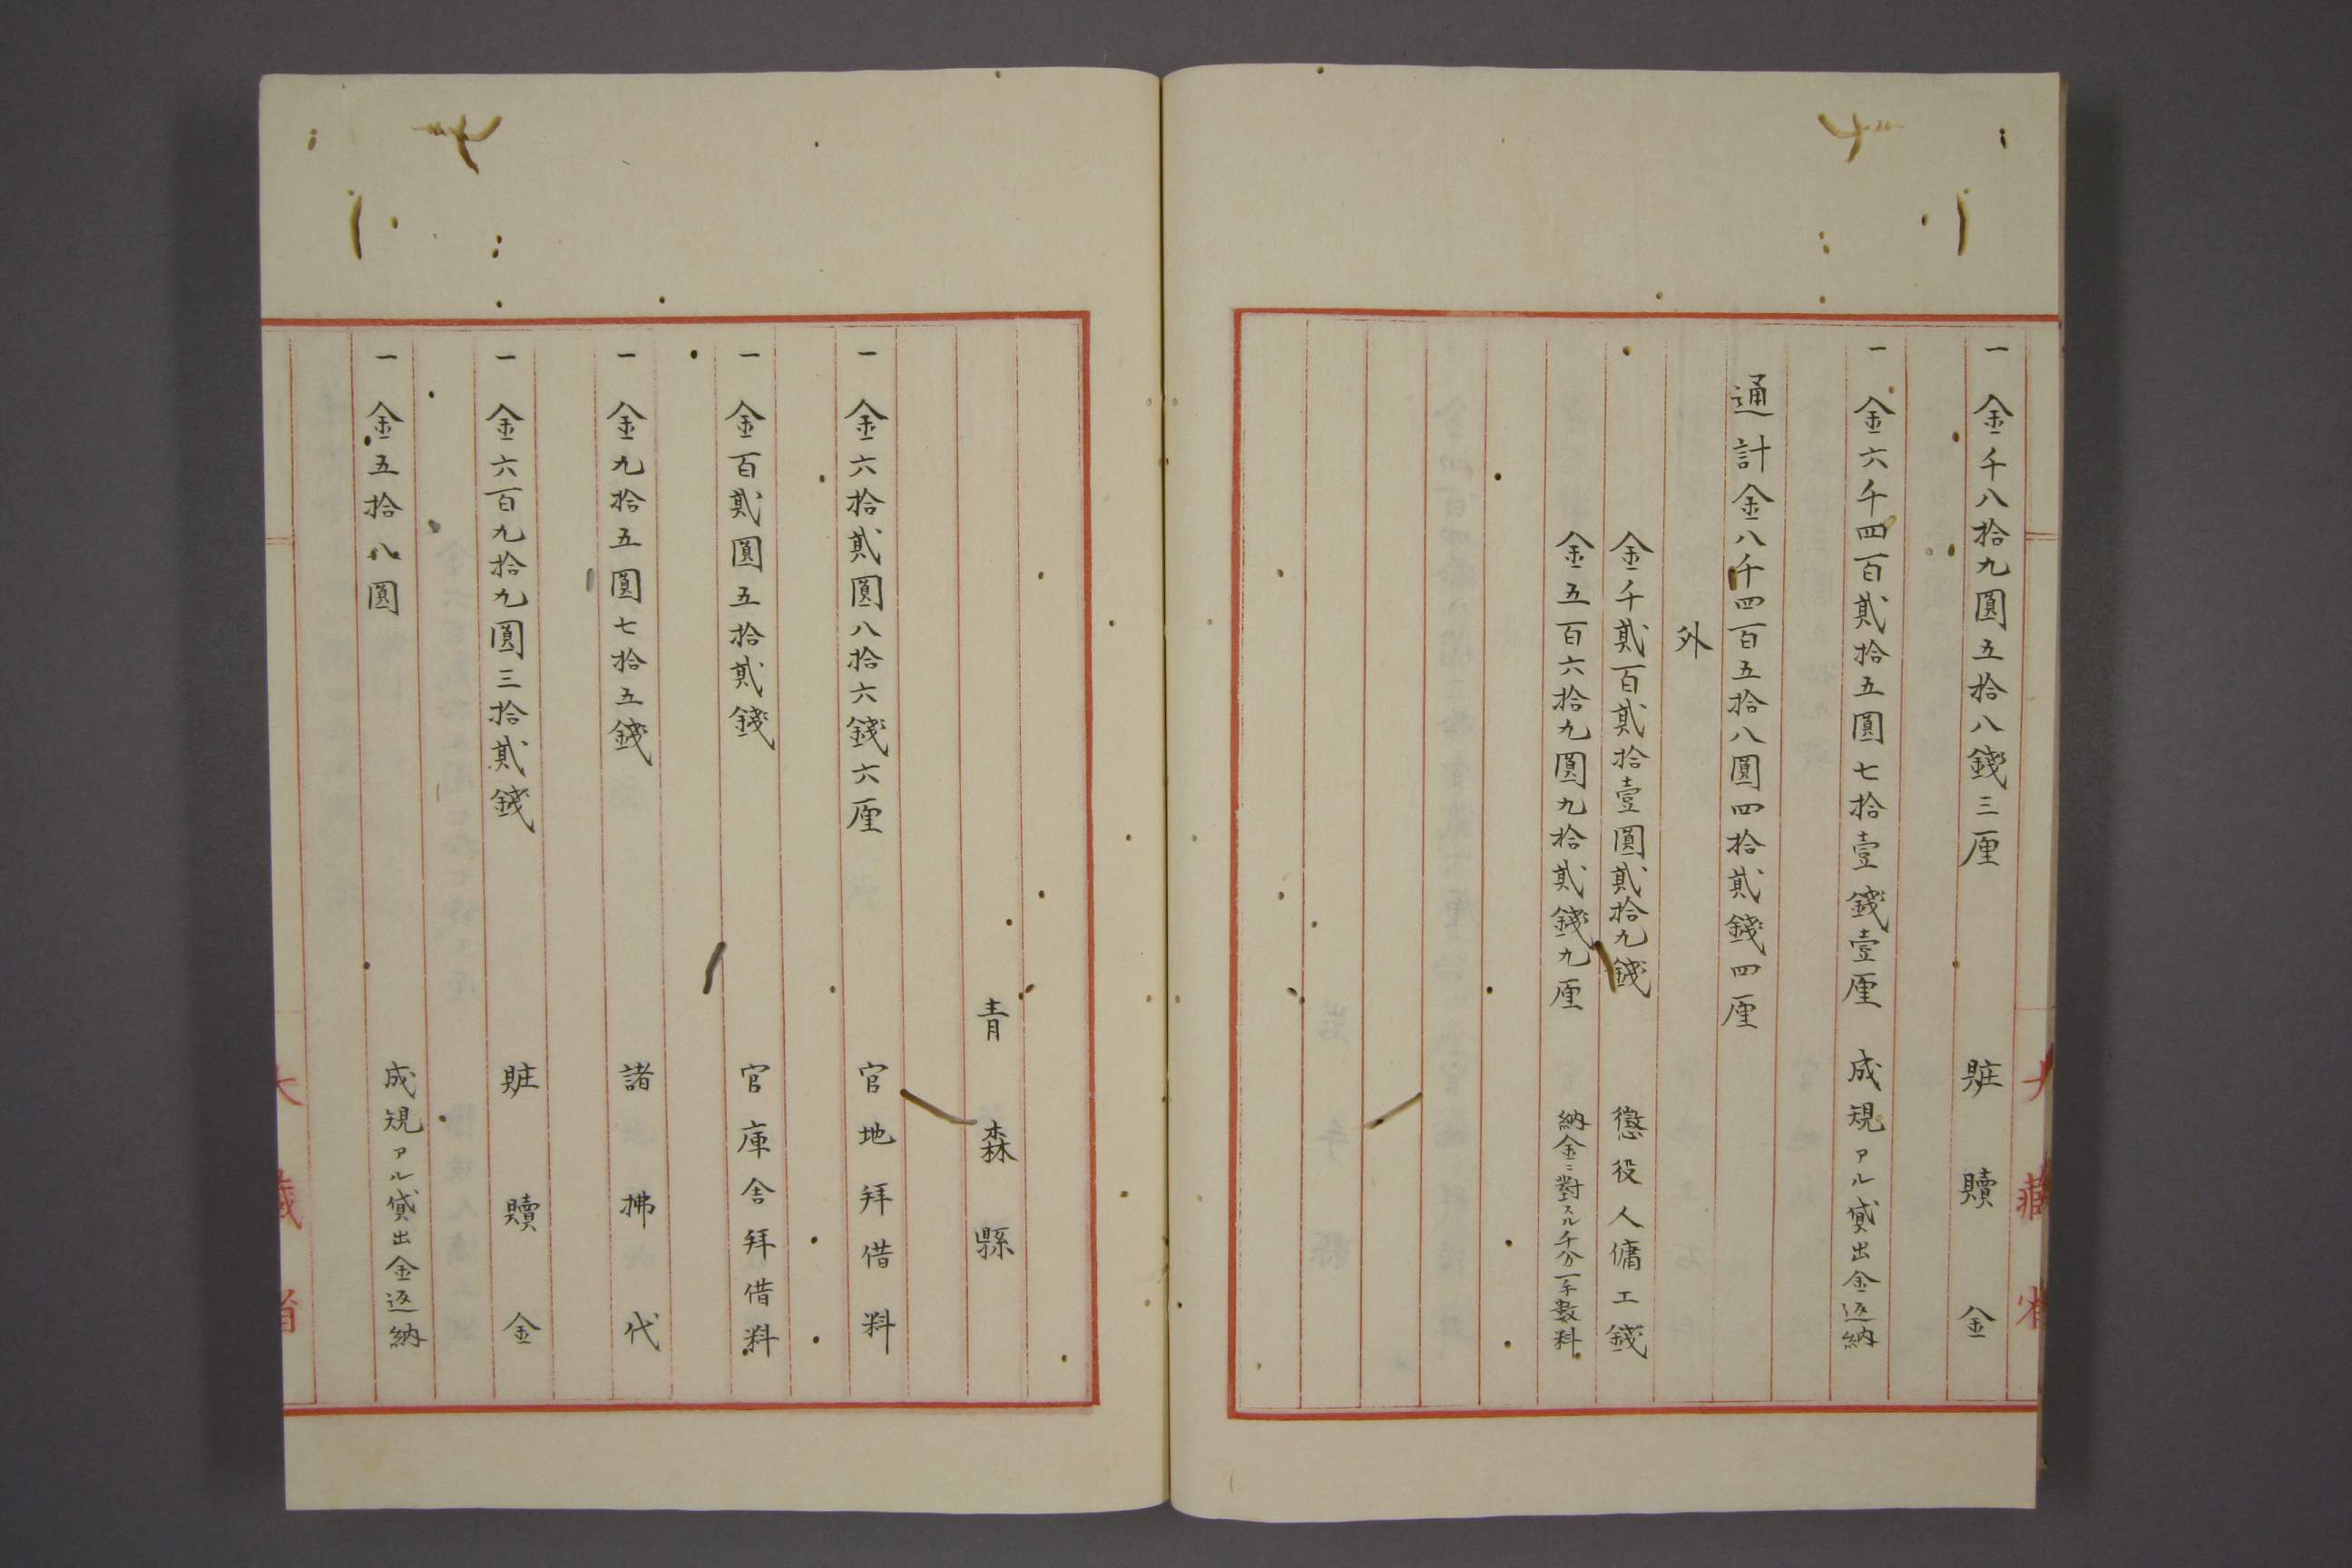 一金千八拾九圓五拾八錢三厘 賍贖金
一金六千四百貳拾五圓七拾壹錢壹厘 成規アル貸出金返納
通計金八千四百五拾八圓四拾貳錢四厘
外
金千貳百貳拾壹圓貳拾九錢 懲役人傭工錢
金五百六拾九圓九拾貳錢九厘 納金ニ對スル千分一手數料
青森縣
一金六拾貳圓八拾六錢六厘 官地拜借料
一金百貳圓五拾貳錢 官庫舎拜借料
一金九拾五圓七拾五錢 諸拂代
一金六百九拾九圓三拾貳錢 賍贖金
一金五拾八圓 成規アル貸出金返納
大藏省